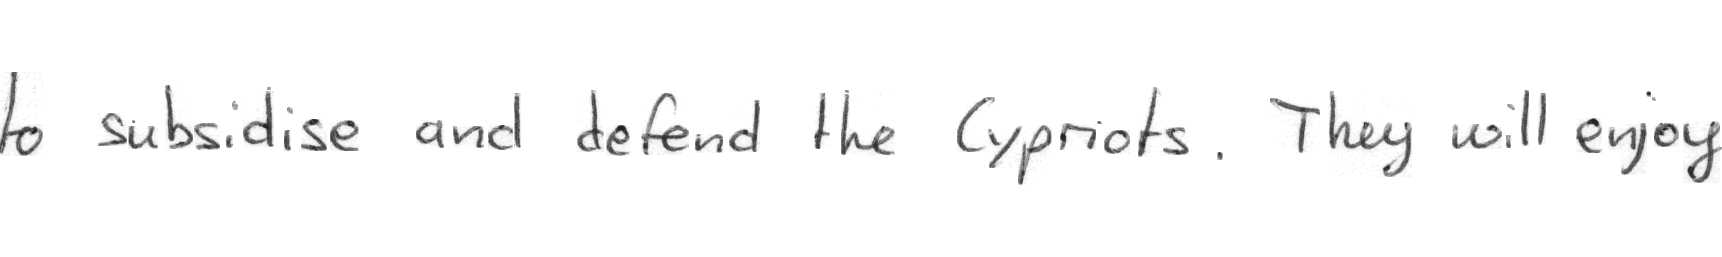 to subsidise and defend the Cypriots. They will enjoy